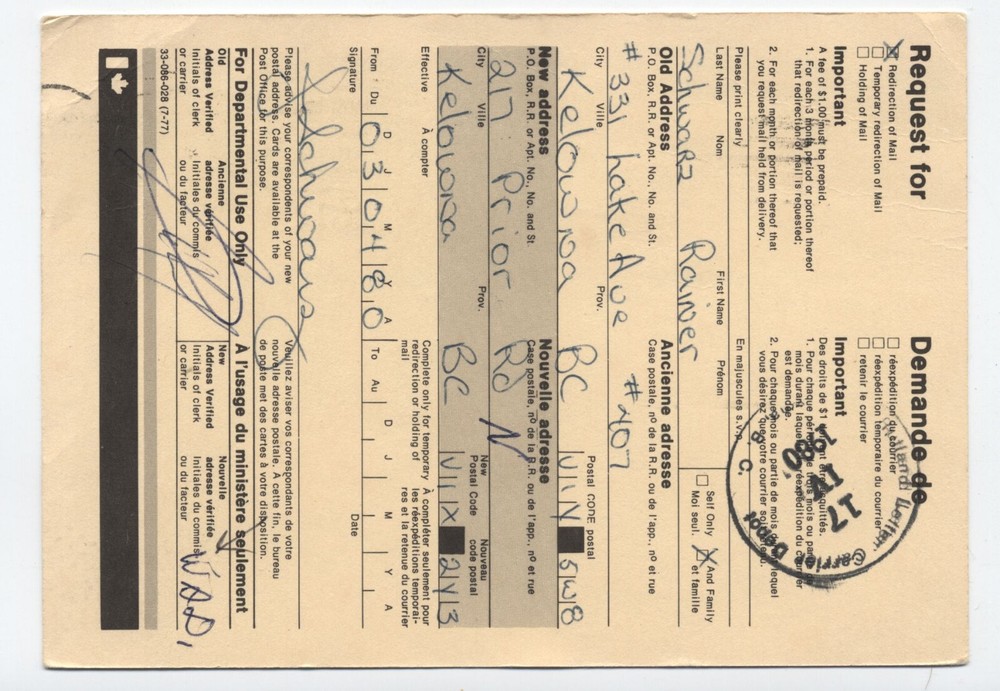 Request for
☒ Redirection of Mail
☐ Temporary redirection of Mail
☐ Holding of Mail
Important
A fee of $1.00 must be prepaid.
1. For each 3 month period or portion thereof
that redirection of mail is requested;
2. For each month or portion thereof that
you request mail held from delivery.
Please print clearly
Demande de
☐ réexpédition du courrier
☐ réexpédition temporaire du courrier
☐ retenir le courrier
Important
Des droits de $1
1. Pour chaque
mois durant
est demandé.
2. Pour chaque mois ou partie de mois
vous désirez que votre courrier soit
En majuscules s.v.p.
Carrier Depot
17 IV 1980
B. C.
Last Name Nom First Name Prénom
Schwarz Rainer
☐ Self Only Moi seul.
☒ And Family et famille
Old Address Ancienne adresse
P.O. Box, R.R. or Apt. No., No. and St. Case postale, nº de la R.R. ou de l'app., nº et rue
# 331 Lake Ave #407
City Ville Prov. Postal CODE postal
Kelowna BC V1Y 5W8
New address Nouvelle adresse
P.O. Box, R.R. or Apt. No., No. and St. Case postale, nº de la R.R. ou de l'app., nº et rue
217 Prior Rd N
City Ville Prov. New Postal Code Nouveau code postal
Kelowna BC V1X 2Y3
Effective À compter
Complete only for temporary redirection or holding of mail
À compléter seulement pour les réexpéditions temporaires et la retenue du courrier
From Du D J M Y A To Au D J M Y A
03 04 80
Signature Date
Schwarz
Please advise your correspondents of your new
postal address. Cards are available at the
Post Office for this purpose.
Veuillez aviser vos correspondants de votre
nouvelle adresse postale. A cette fin, le bureau
de poste met des cartes à votre disposition.
For Departmental Use Only À l'usage du ministère seulement
Old Ancienne New Nouvelle
Address Verified adresse vérifiée Address Verified adresse vérifiée
Initials of clerk Initiales du commis Initials of clerk Initiales du commis
or carrier ou du facteur or carrier ou du facteur
33-086-028 (7-77)